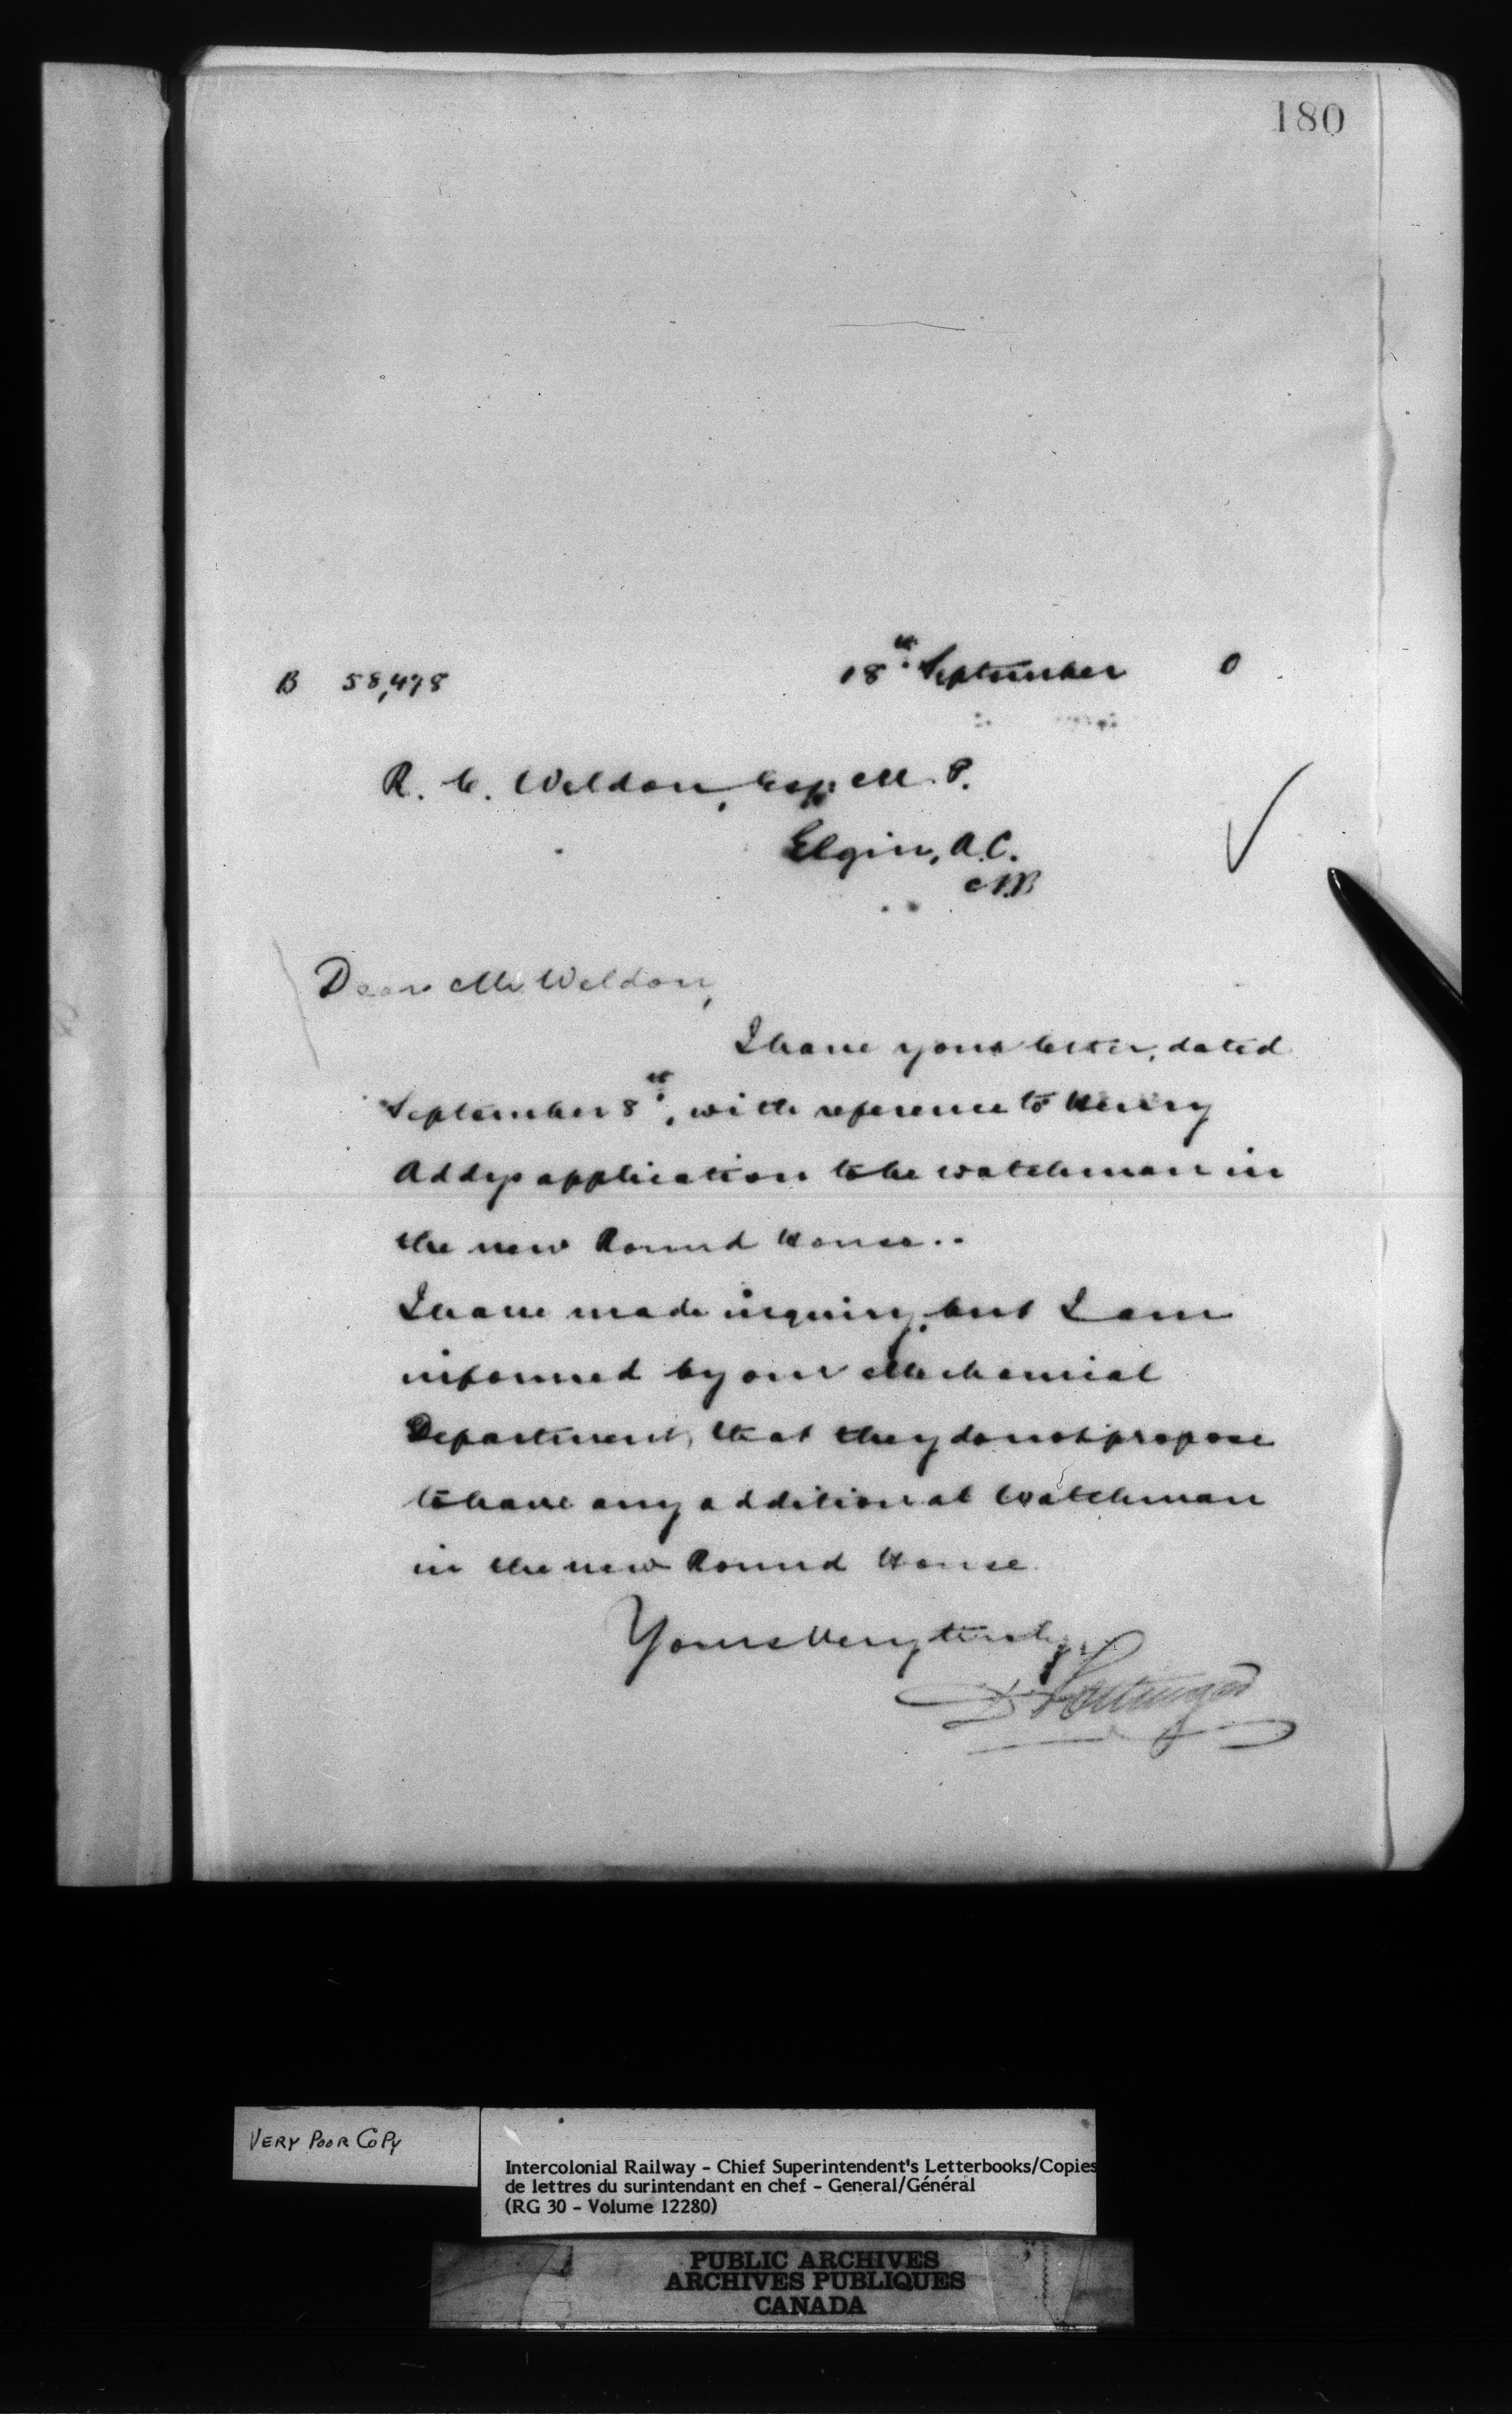 180
B 58,478
18th September 0
R. C. Weldon, Esq. M. P.
Elgin, A.C.
N.B
Dear Mr Weldon,
I have your letter, dated
September 8th, with reference to Henry
Addys application to be watchman in
the new Round House..
I have made inquiry, but I am
informed by our Mechanical
Department, that they do not propose
to have any additional Watchman
in the new Round House.
Yours very truly,
D Pottinger
VERY POOR COPY
Intercolonial Railway - Chief Superintendent's Letterbooks/Copies
de lettres du surintendant en chef - General/Général
(RG 30 - Volume 12280)
PUBLIC ARCHIVES
ARCHIVES PUBLIQUES
CANADA